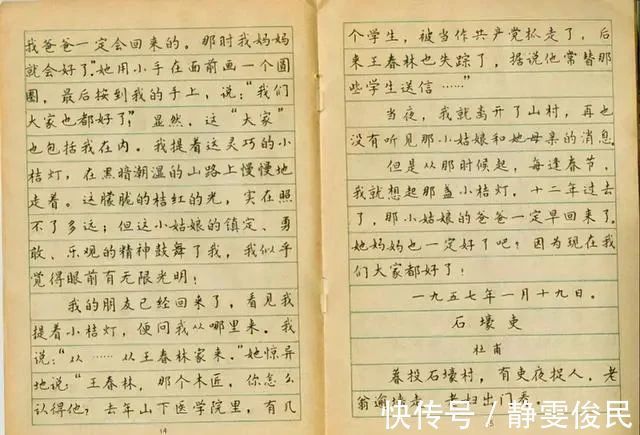 我爸爸一定会回来的。那时我妈妈
就会好了”她用小手在面前画一个圆
圈，最后按到我的手上，说：“我们
大家也都好了！”显然，这“大家”
也包括我在内。我提着这灵巧的小
桔灯，在黑暗潮湿的山路上慢慢地
走着。这朦胧的桔红的光，实在照
不了多远；但这小姑娘的镇定、勇
敢、乐观的精神鼓舞了我，我似乎
觉得眼前有无限光明！
我的朋友已经回来了，看见我
提着小桔灯，便问我从哪里来。我
说：“从……从王春林家来。”她惊异
地说：“王春林，那个木匠，你怎么
认得他？去年山下医学院里，有几
14
个学生，被当作共产党抓走了，后
来王春林也失踪了，据说他常替那
些学生送信……”
当夜，我就离开了山村，再也
没有听见那小姑娘和她母亲的消息。
但是从那时候起，每逢春节，
我就想起那盏小桔灯。十二年过去
了，那小姑娘的爸爸一定早回来了。
她妈妈也一定好了吧？因为现在我
们大家都好了！
一九五七年一月十九日。
石壕吏
杜甫
暮投石壕村，有吏夜捉人。老
翁逾墙走，老妇出门看。
15
快传号／静雯俊民